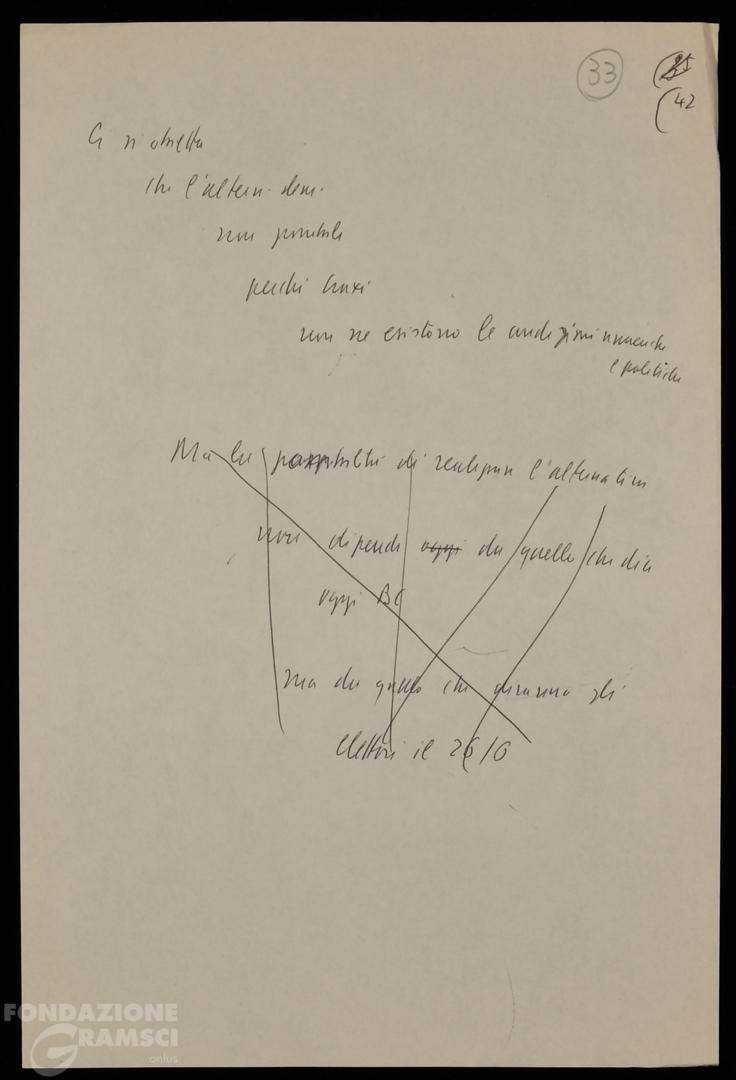 33
42
Ci si obietta
che l'altern. dem.
non possibile
perché Craxi
non ne esistono le condizioni numeriche
e politiche
Ma la possibilità di realizzare l'alternativa
non dipende oggi da quello che dice
oggi BC
ma da quello che diranno gli
elettori il 26/6
FONDAZIONE
GRAMSCI
onlus